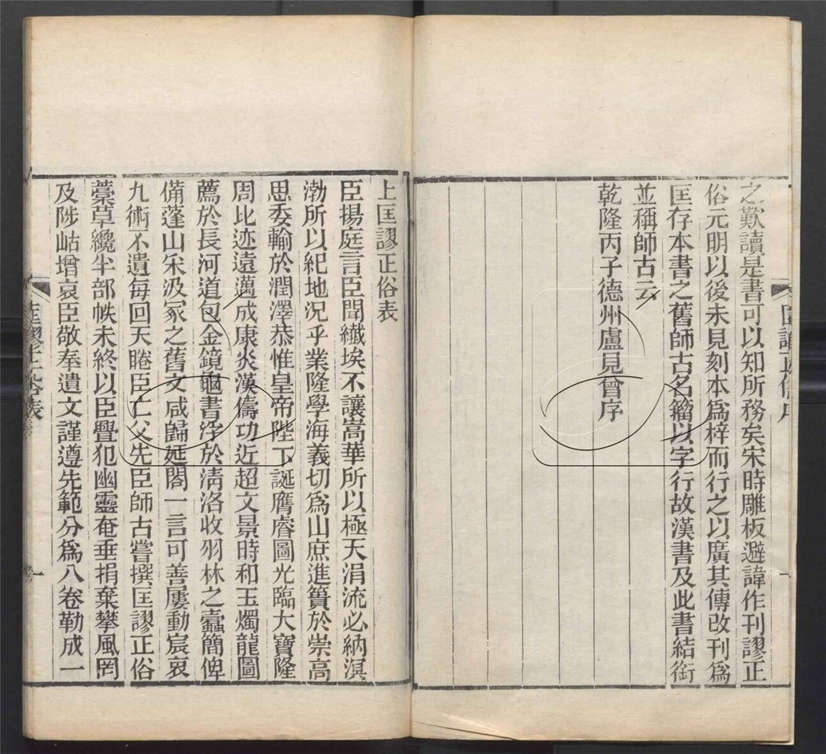 之歎讀是書可以知所務矣宋時雕板避諱作刊謬正
俗元明以後未見刻本爲梓而行之以廣其傳改刊爲
匡存本書之舊師古名籒以字行故漢書及此書結銜
並稱師古云
乾隆丙子德州盧見曾序
上匡謬正俗表
臣揚庭言臣聞纖埃不讓嵩華所以極天涓流必納溟
渤所以紀地況乎業隆學海義切爲山庶進簣於崇高
思委輸於潤澤恭惟皇帝陛下誕膺睿圖光臨大寶隆
周比迹遠邁成康炎漢儔功近超文景時和玉燭龍圖
薦於長河道包金鏡龜書浮於清洛收羽林之蠹簡俾
備蓬山采汲冢之舊文咸歸延閣一言可善屢動宸衷
九術不遺每回天睠臣亡父先臣師古嘗撰匡謬正俗
藁草纔半部帙未終以臣舋犯幽靈奄垂捐棄攀風罔
及陟岵增哀臣敬奉遺文謹遵先範分爲八卷勒成一
匡謬正俗表
一